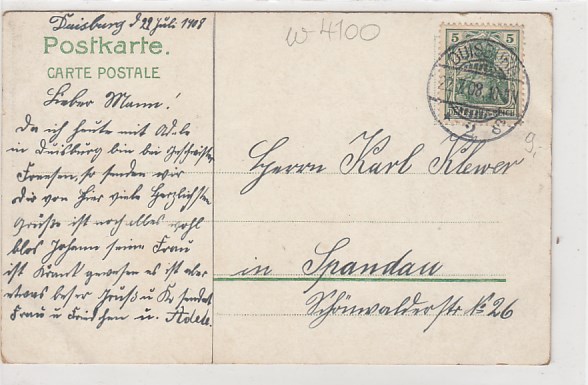 Duisburg d 22 Juli 1908
Postkarte.
CARTE POSTALE
Lieber Mann!
Da ich heute mit Adele
in Duisburg bin bei Geschwister
Freesen, so senden wir
Dir von hier viele Herzlichsten
Grüße ist noch alles wohl
blos Johann seine Frau
ist Krank gewesen es ist aber
etwas beser Gruß u Ks sendet
Frau u Friedchen u. Adele.
w-4100
5 5
DUISBURG
9.-
Herrn Karl Klewer
in Spandau
Schönwalderstr No 26